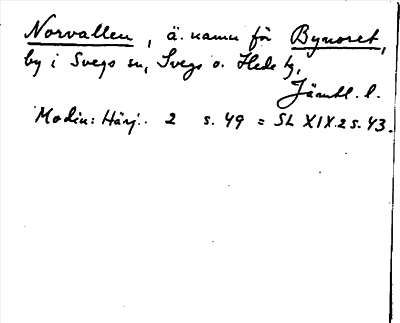 Norvallen, ä. namn för Bynoret,
by i Svegs sn, Svegs o. Hede tg,
Jämtl. l.
Modin: Härj. 2 s. 49 = SL XIX.2 s. 43.